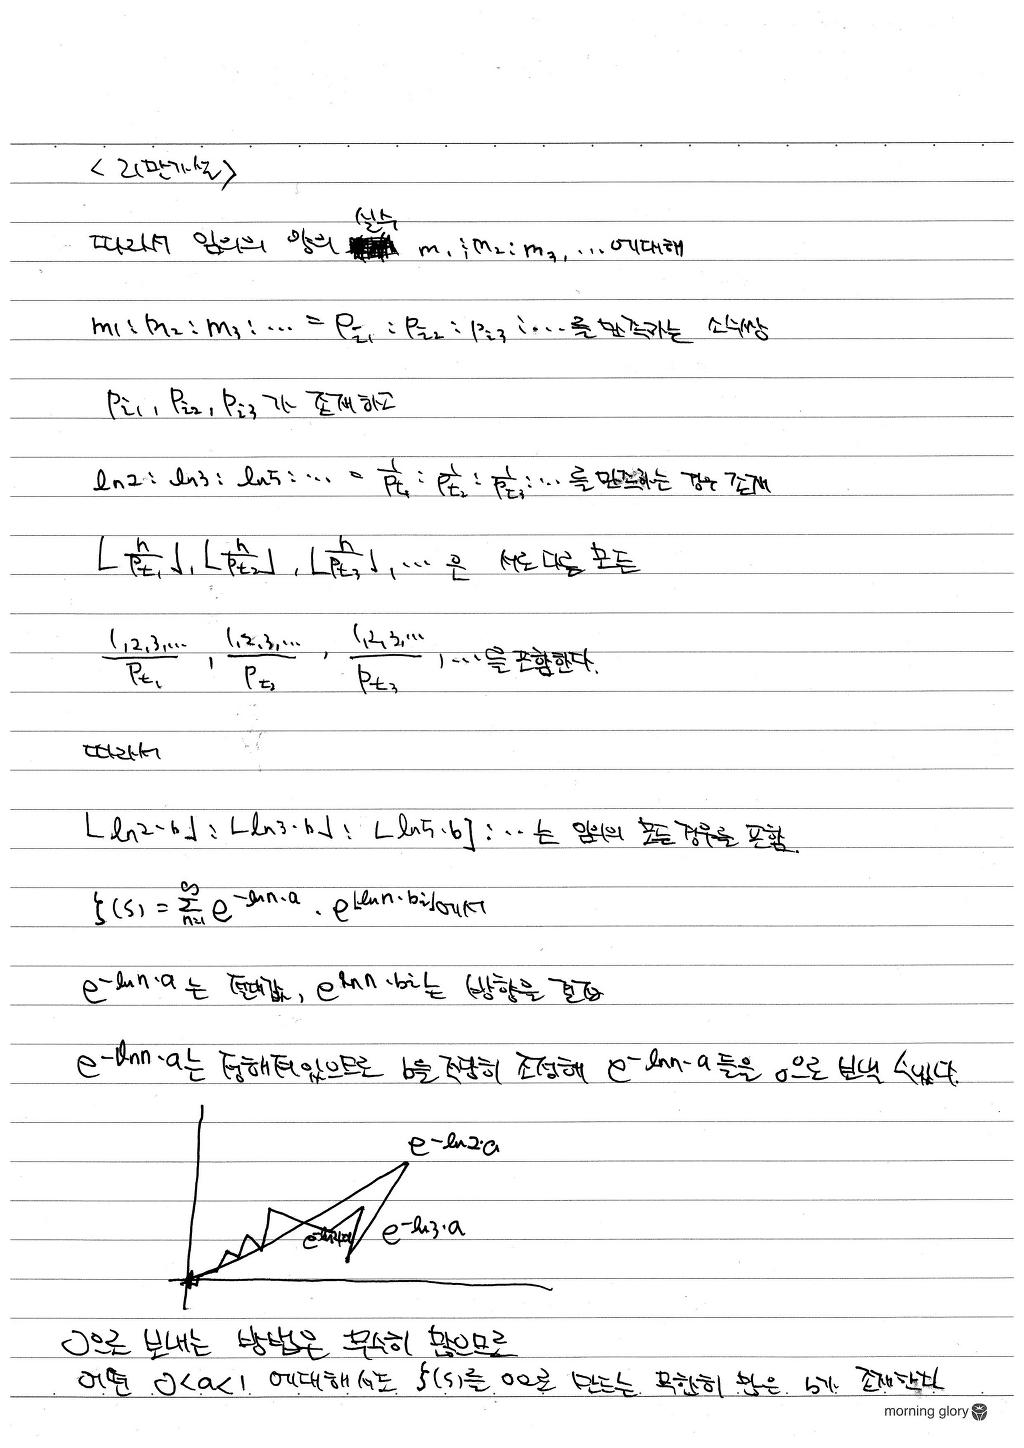 <리만가설>
실수
따라서 임의의 양의 m₁:m₂:m₃, … 에대해
m₁:m₂:m₃:… = Pi₁ : Pi₂ : Pi₃ :… 를 만족하는 소수쌍
Pi₁, Pi₂, Pi₃ 가 존재하고
ln2 : ln3 : ln5 : … = 1/Pt₁ : 1/Pt₂ : 1/Pt₃ : … 를 만족하는 경우 존재
⌊n/Pt₁⌋, ⌊n/Pt₂⌋, ⌊n/Pt₃⌋, … 은 서로 다른 모든
1,2,3,…/Pt₁ , 1,2,3,…/Pt₂ , 1,2,3,…/Pt₃ , … 을 포함한다.
따라서
⌊ln2·b⌋ : ⌊ln3·b⌋ : ⌊ln5·b⌋ : … 는 임의의 모든 경우를 포함.
ξ(s) = Σ_{n=1}^{∞} e^{-lnn·a} · e^{⌊lnn·bi⌋} 에서
e^{-lnn·a} 는 절대값, e^{lnn·bi} 는 방향을 결정
e^{-lnn·a} 는 정해져있으므로 b를 적당히 조정해 e^{-lnn·a} 들을 0으로 보낼 수있다.
e^{-ln2·a}
e^{-ln3·a}
e^{-ln4·a}
0으로 보내는 방법은 무수히 많으므로
어떤 0<a<1 에대해서도 ξ(s)를 0으로 만드는 무한히 많은 b가 존재한다
morning glory